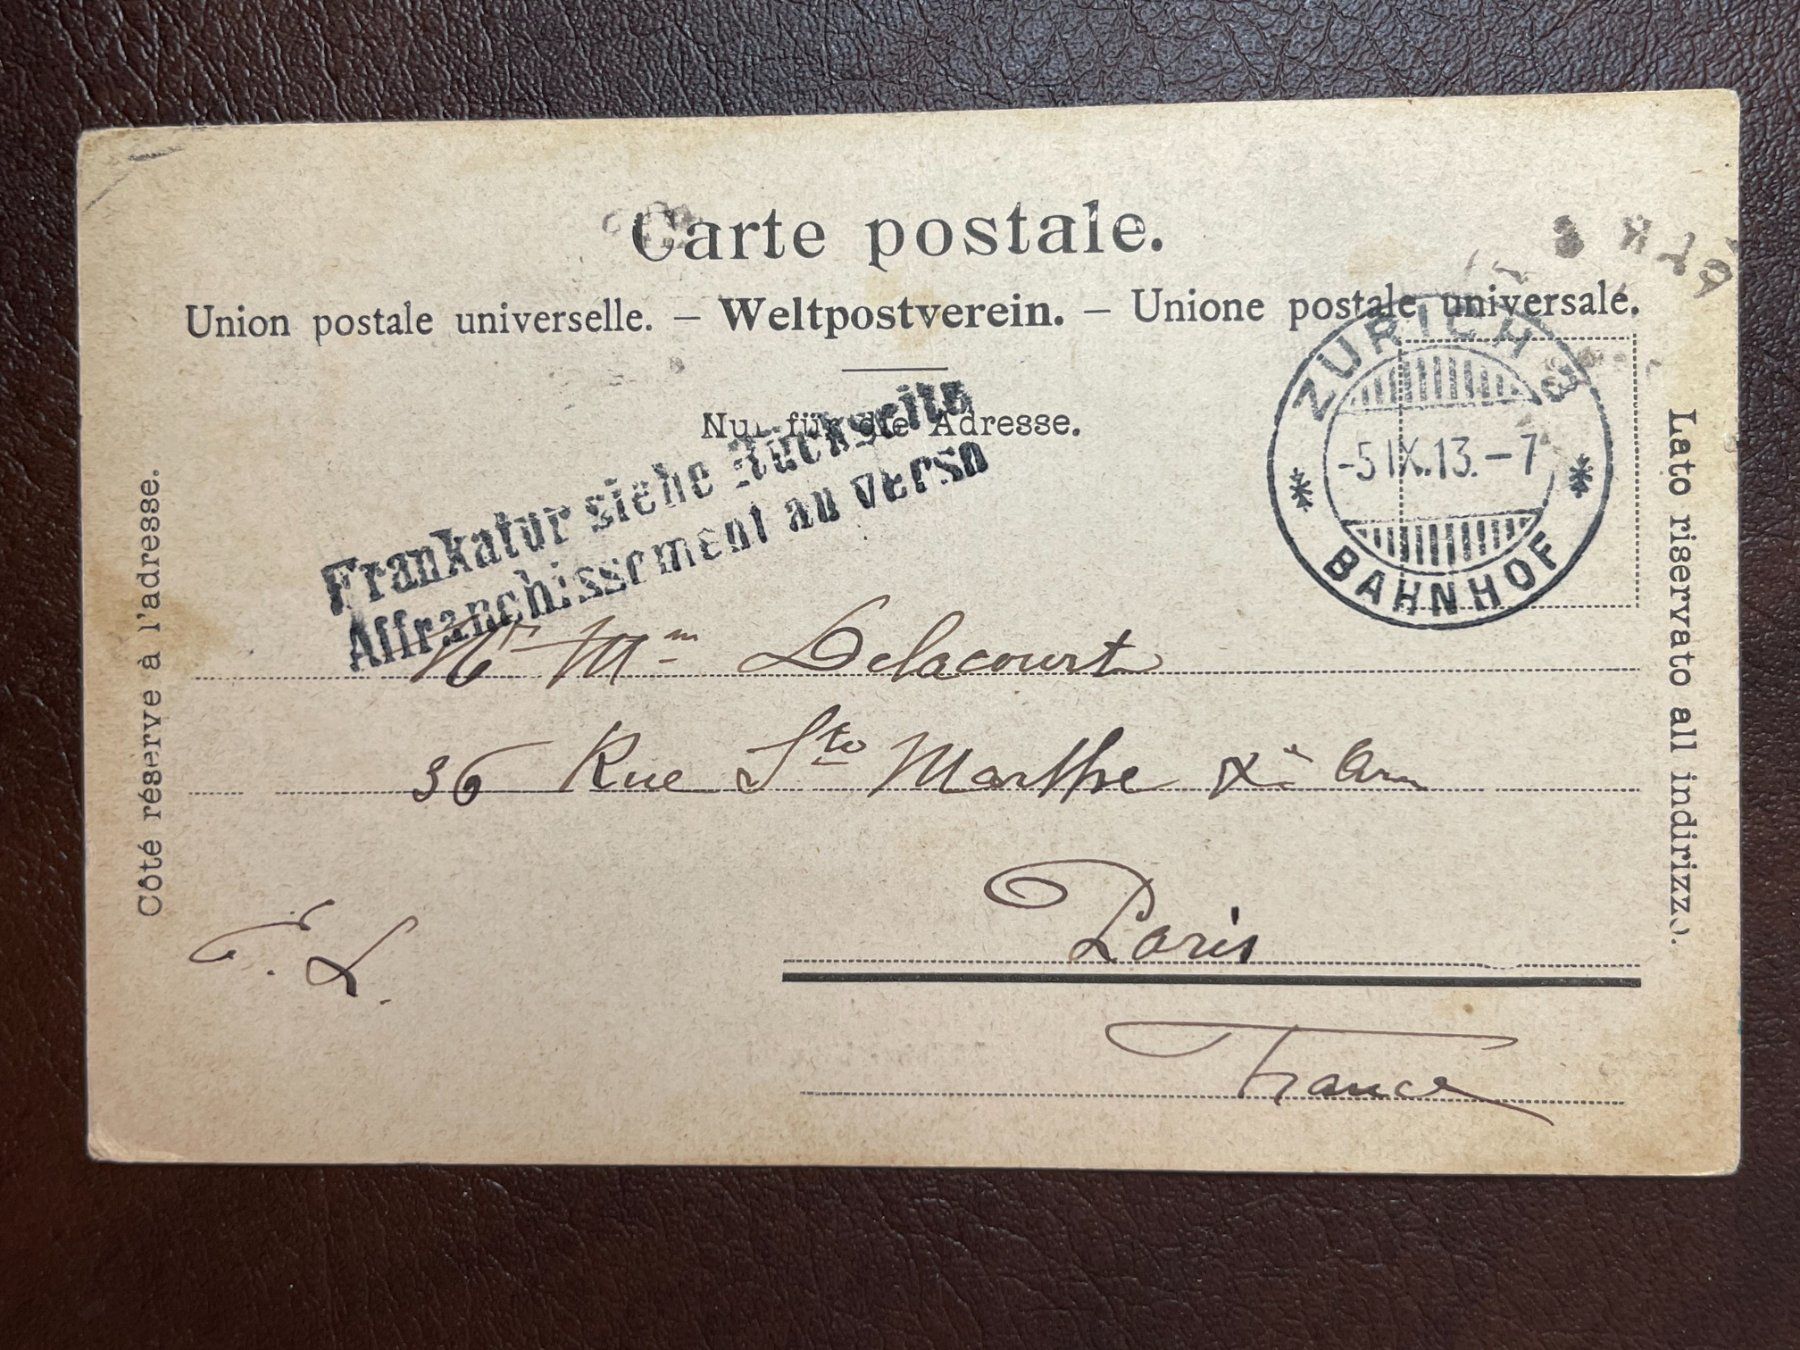 Carte postale.
Union postale universelle. — Weltpostverein. — Unione postale universale.
Nur für die Adresse.
Frankatur siehe Rückseite
Affranchissement au verso
ZÜRICH
-5 IX.13.-7
BAHNHOF
Côté réservé à l'adresse.
Lato riservato all indirizzo.
Mr Mm Delacourt
36 Rue Ste Marthe Xe Arr
Paris
France
F. L.